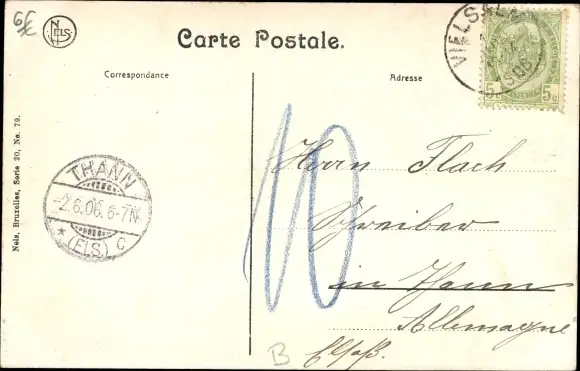 6
NELS
Carte Postale.
VIELSALM
1906
5c 5c
Correspondance
Adresse
Nels, Bruxelles, Serie 20, No. 79.
THANN
-2.6.06.6-7N
* (ELS.) C
10
Herrn Flach
Schreiber
in Thann
Allemagne
Elsaß.
B